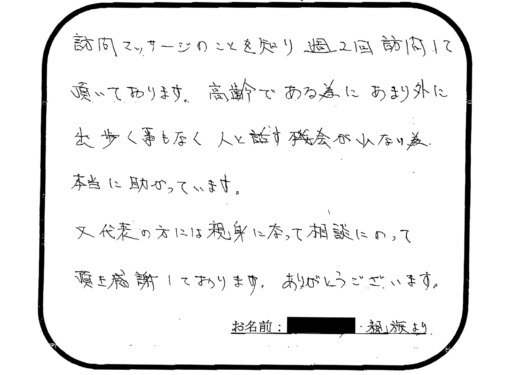 訪問マッサージのことを知り 週2回訪問して
頂いております。高齢である為にあまり外に
出歩く事もなく人と話す機会が少ない為
本当に助かっています。
又代表の方には親身になって相談にのって
頂き感謝しております。ありがとうございます。
お名前： ・親族より